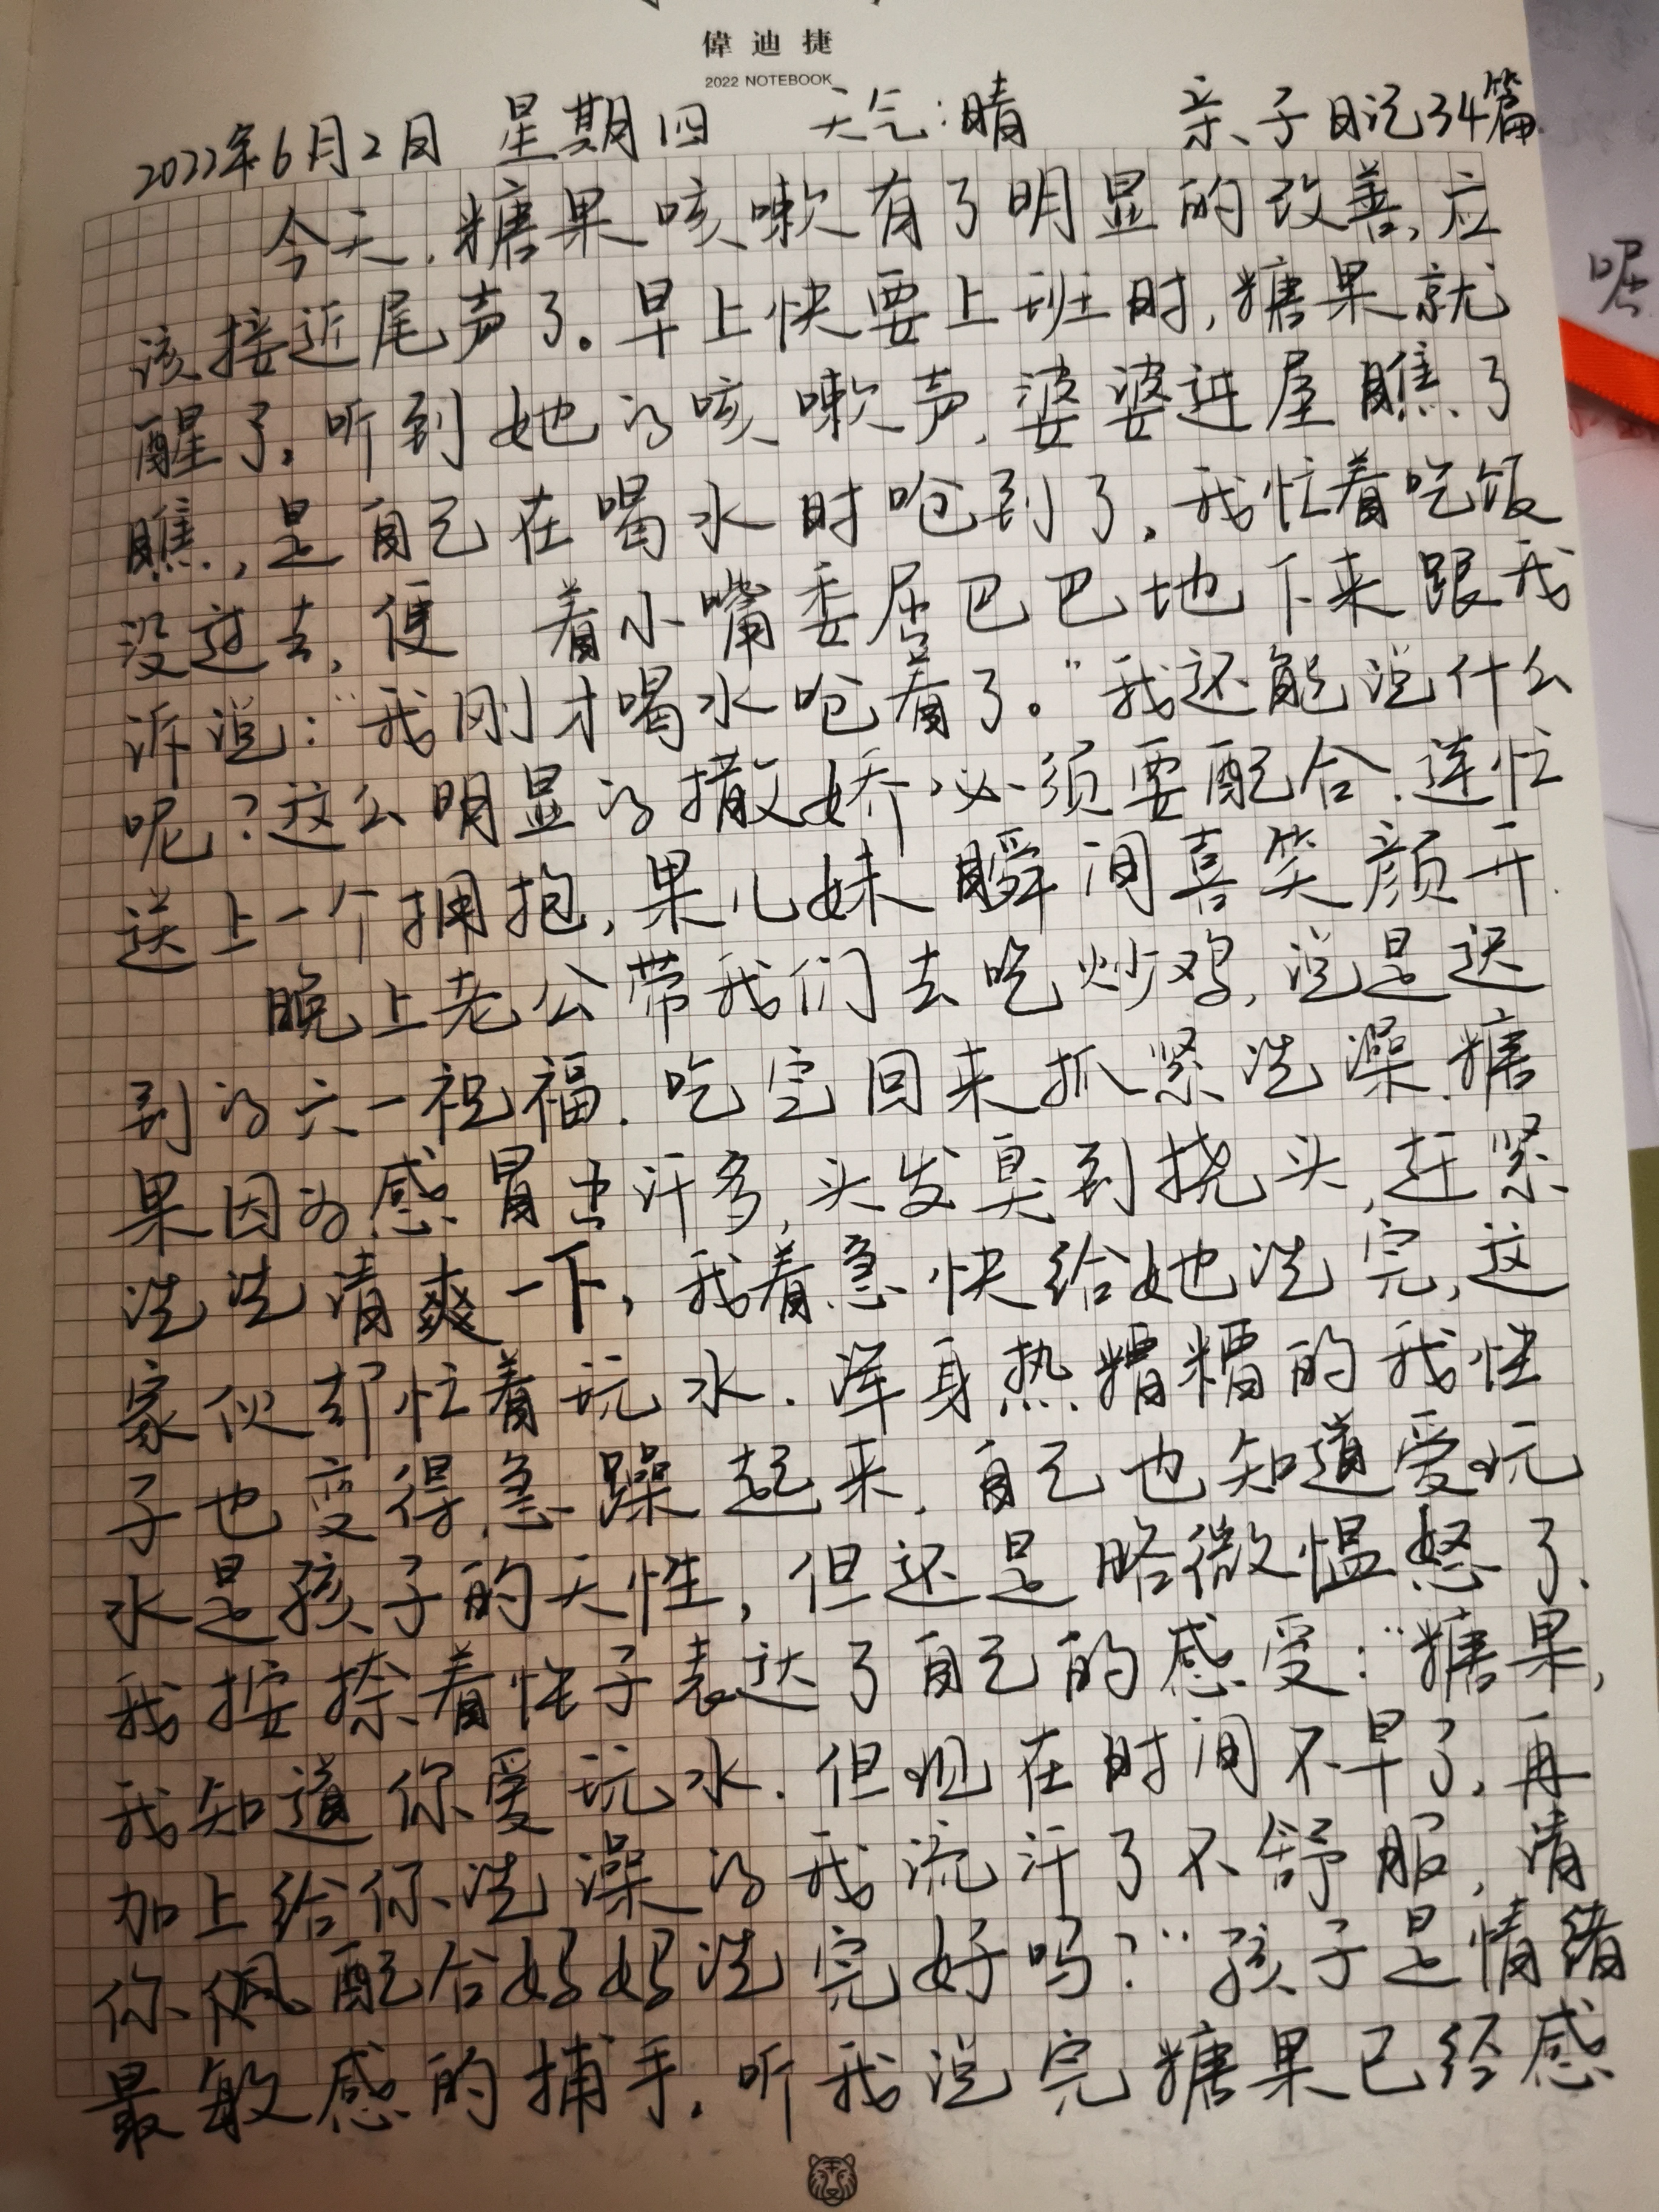 偉迪捷
2022 NOTEBOOK
2022年6月2日 星期四 天气:晴 亲子日记34篇
今天,糖果咳嗽有了明显的改善,应
该接近尾声了。早上快要上班时,糖果就
醒了,听到她的咳嗽声,婆婆进屋瞧了
瞧,是自己在喝水时呛到了,我忙着吃饭
没过去,便 着小嘴委屈巴巴地下来跟我
诉说:“我刚才喝水呛着了。”我还能说什么
呢?这么明显的撒娇必须要配合,连忙
送上一个拥抱,果儿妹瞬间喜笑颜开.
晚上老公带我们去吃炒鸡,说是迟
到的六一祝福.吃完回来抓紧洗澡.糖
果因为感冒出汗多,头发臭到挠头,赶紧
洗洗清爽一下,我着急快给她洗完,这
家伙却忙着玩水.浑身热糟糟的我性
子也变得急躁起来,自己也知道爱玩
水是孩子的天性,但还是略微愠怒了,
我按捺着性子表达了自己的感受:“糖果,
我知道你爱玩水.但现在时间不早了,再
加上给你洗澡的我流汗了不舒服,请
你 配合妈妈洗完好吗?”孩子是情绪
最敏感的捕手,听我说完糖果已经感
呢